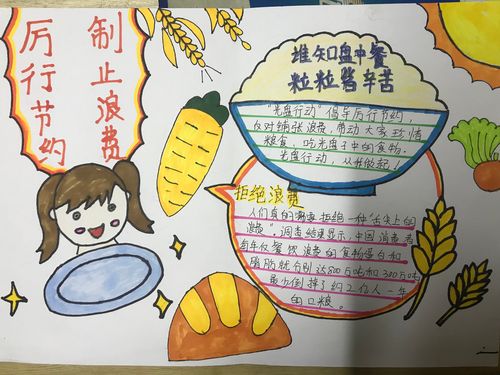 制止浪费
厉行节约
谁知盘中餐
粒粒皆辛苦
"光盘行动"倡导厉行节约,
反对铺张浪费,带动大家珍惜
粮食、吃光盘子中的食物.
光盘行动,从我做起!
拒绝浪费
人们真的需要拒绝一种"舌尖上的
浪费"。调查结果显示,中国消费者
每年仅餐饮浪费的食物蛋白和
脂肪就分别达800万吨和300万吨
最少倒掉了约2亿人一年
的口粮。